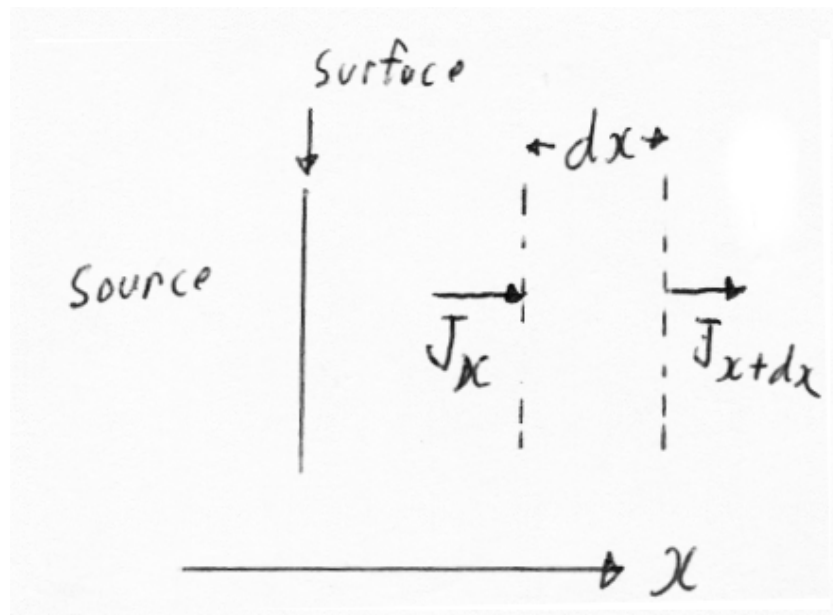 Surface
dx
Source
Jx
Jx+dx
x